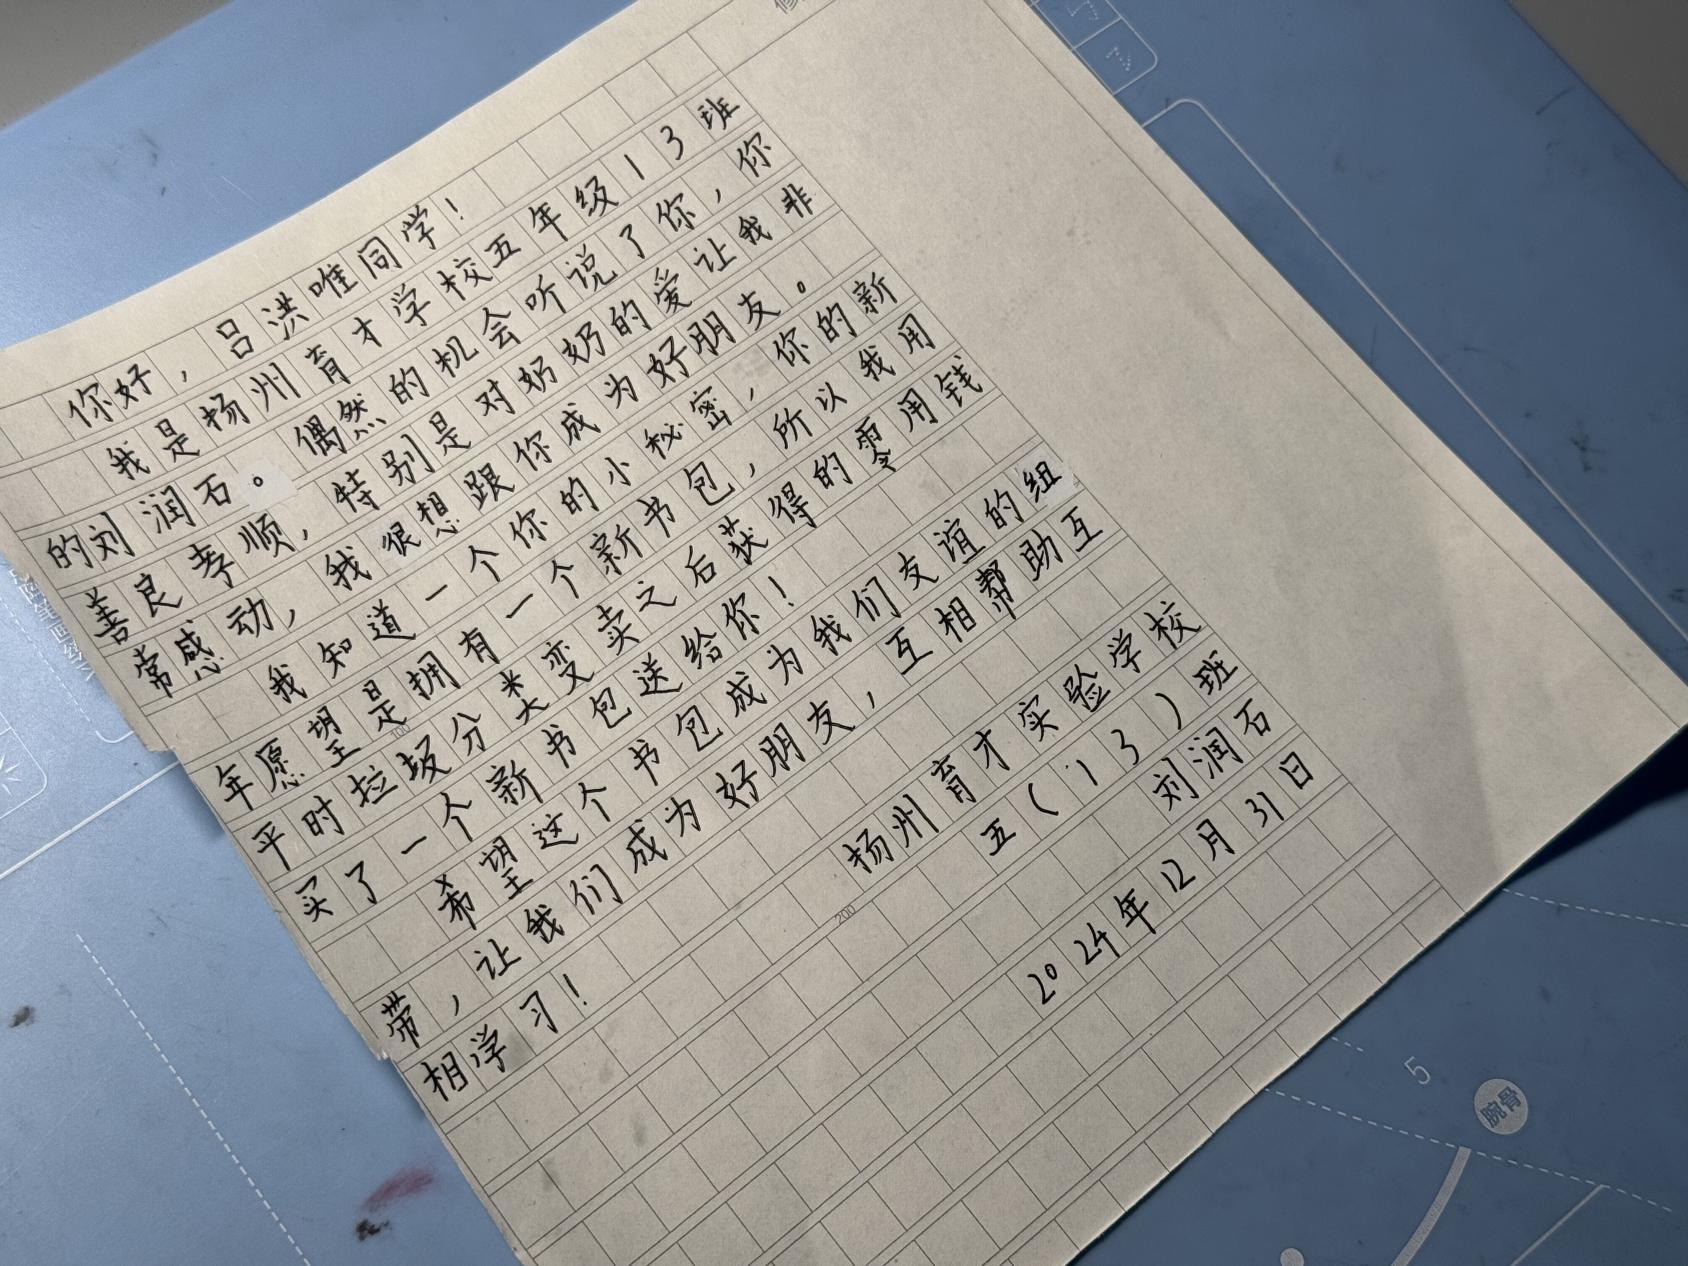 你好，吕洪唯同学！
我是扬州育才学校五年级13班
的刘润石。偶然的机会听说了你，你
善良孝顺，特别是对奶奶的爱让我非
常感动，我很想跟你成为好朋友。
我知道一个你的小秘密，你的新
年愿望是拥有一个新书包，所以我用
平时垃圾分类变卖之后获得的零用钱
买了一个新书包送给你！
希望这个书包成为我们友谊的纽
带，让我们成为好朋友，互相帮助互
相学习！
扬州育才实验学校
五(13)班
刘润石
2024年12月31日
100
200
5
腕骨